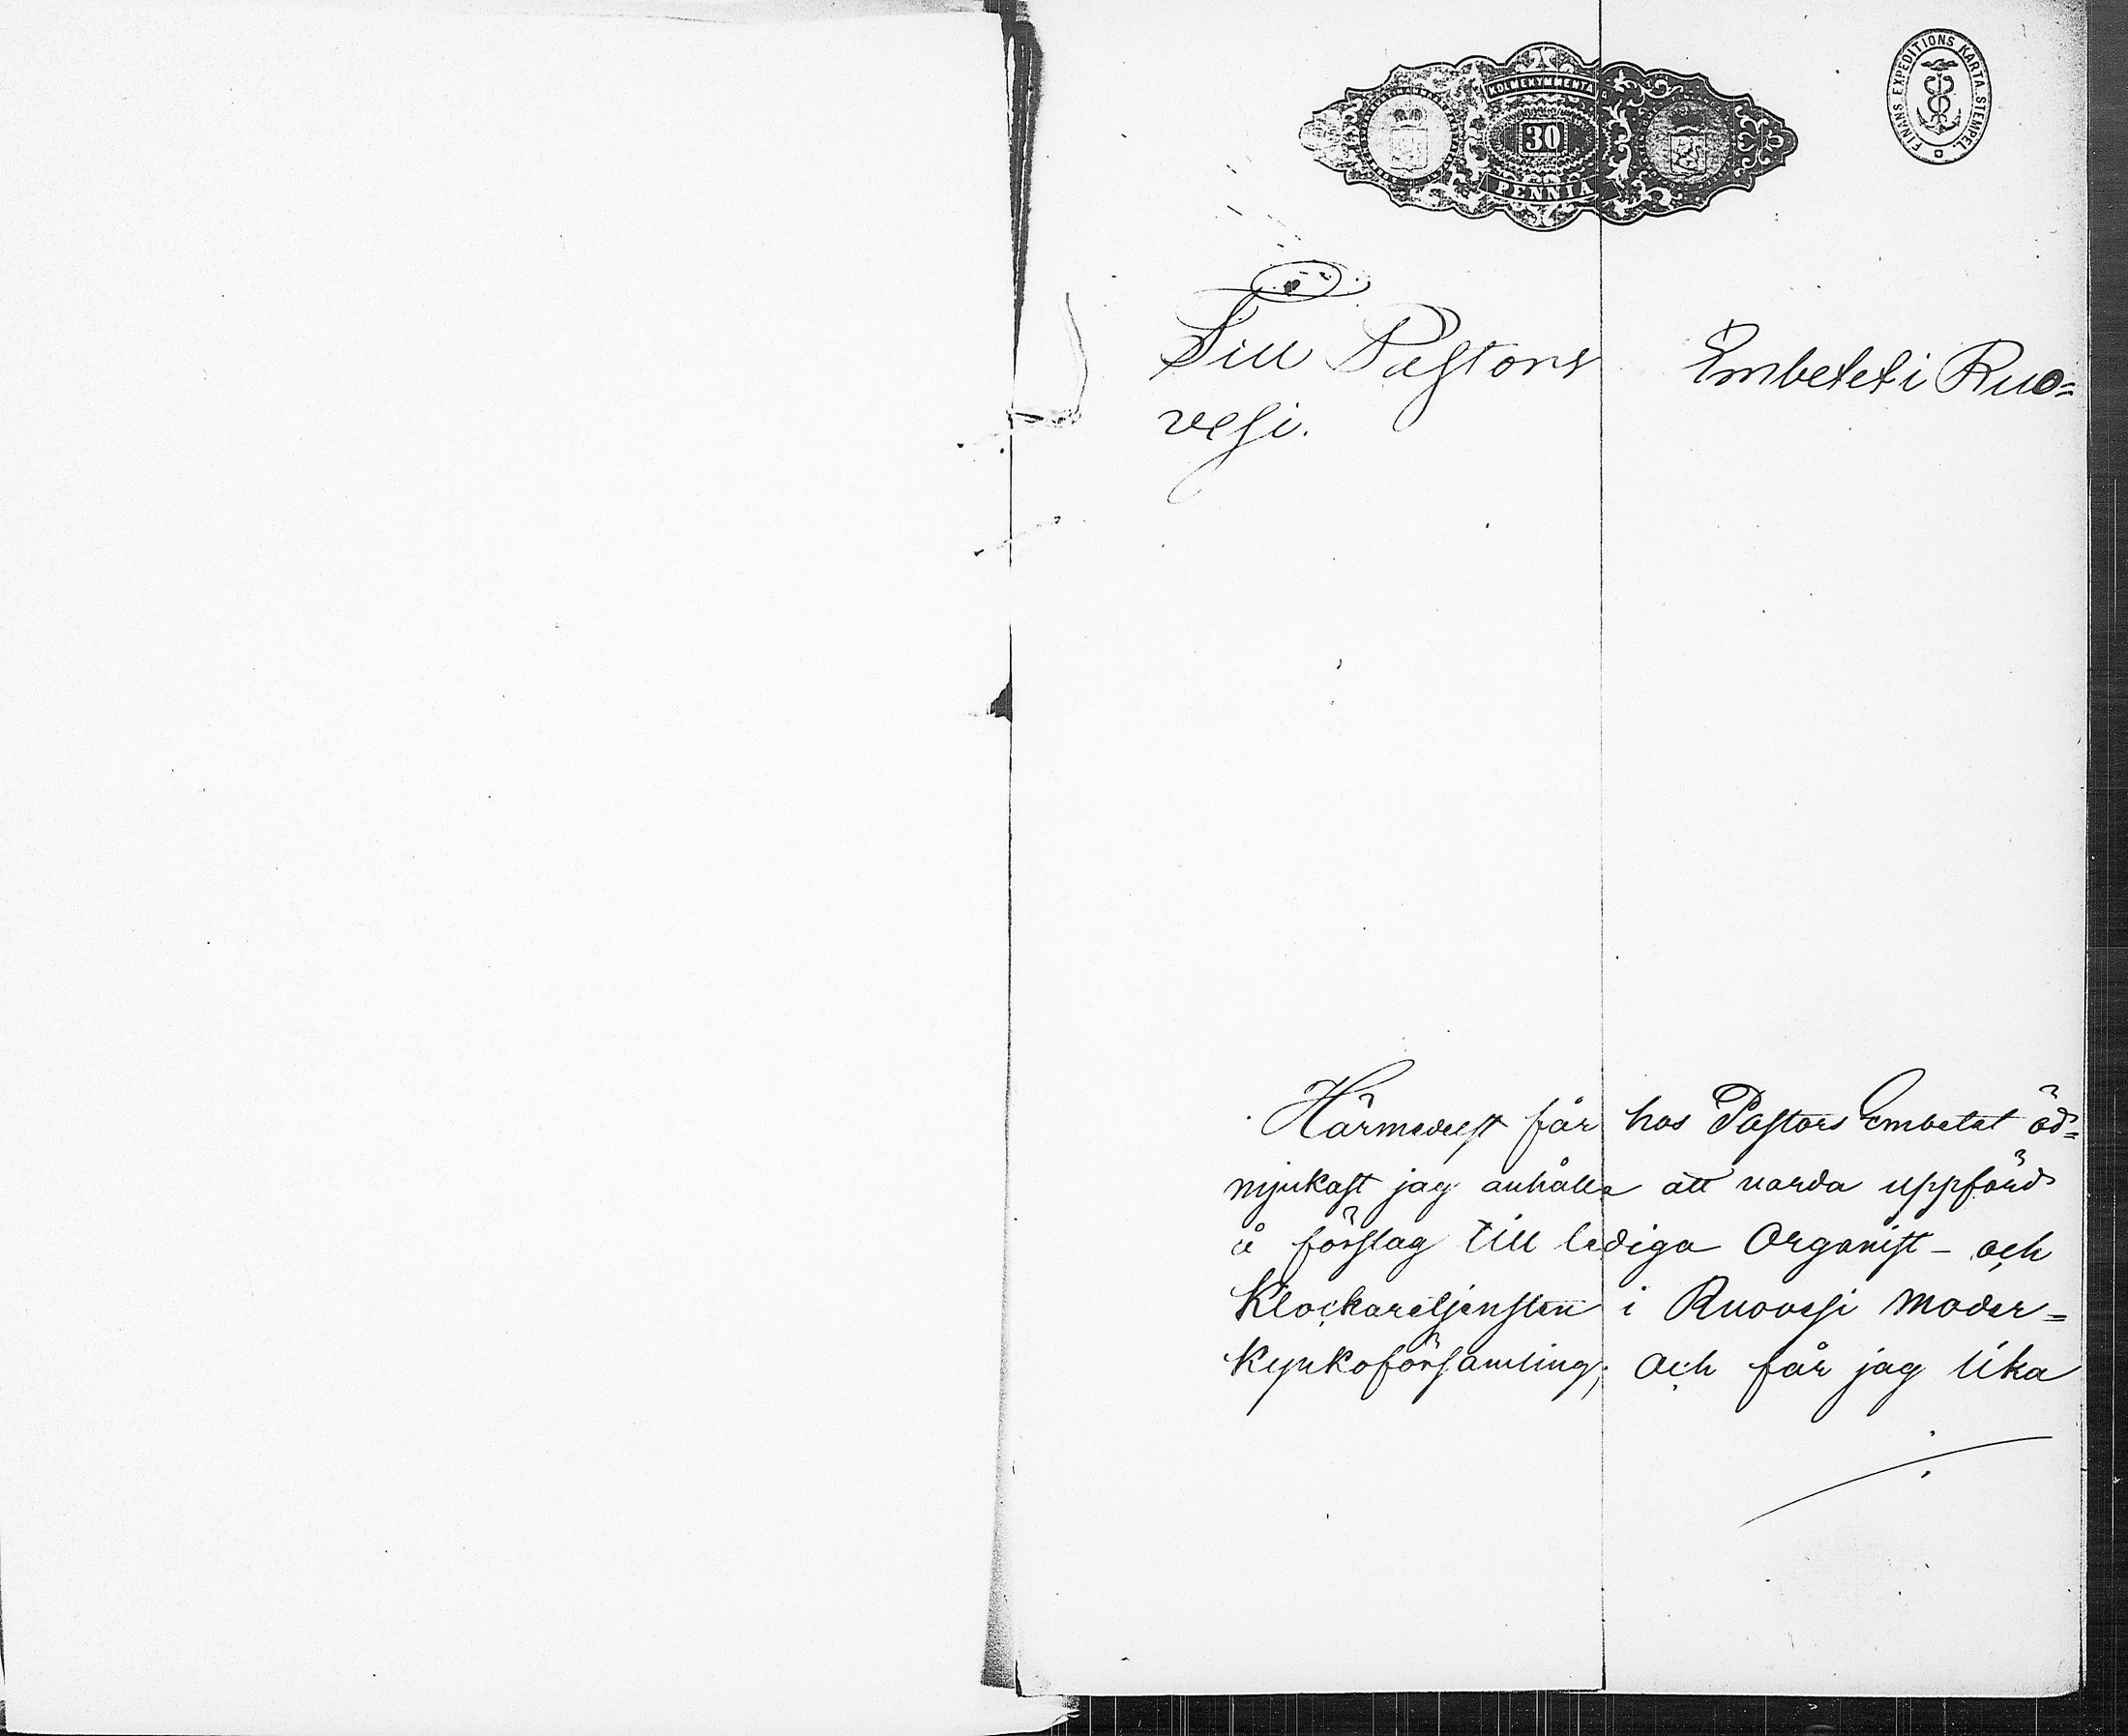 KOLMEKYMMENTÄ
30
PENNIÄ
FINANS EXPEDITIONS KARTA.STEMPEL.
Till Pastors Embetet i Ruo=
vesi.
Härmedelst får hos Pastors Embetet öd=
mjukast jag anhålla att varda uppförd
å förslag till lediga Organist- och
Klockaretjensten i Ruovesi moder=
kyrkoförsamling; och får jag lika